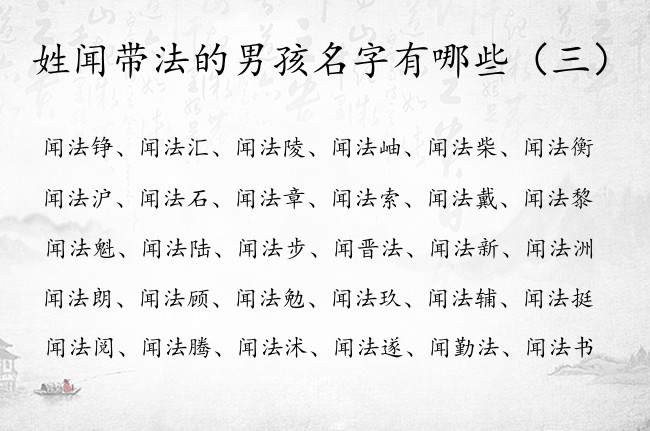 姓闻带法的男孩名字有哪些（三）
闻法铮、闻法汇、闻法陵、闻法岫、闻法柴、闻法衡
闻法沪、闻法石、闻法章、闻法索、闻法戴、闻法黎
闻法魁、闻法陆、闻法步、闻晋法、闻法新、闻法洲
闻法朗、闻法顾、闻法勉、闻法玖、闻法辅、闻法挺
闻法阅、闻法腾、闻法沭、闻法遂、闻勤法、闻法书